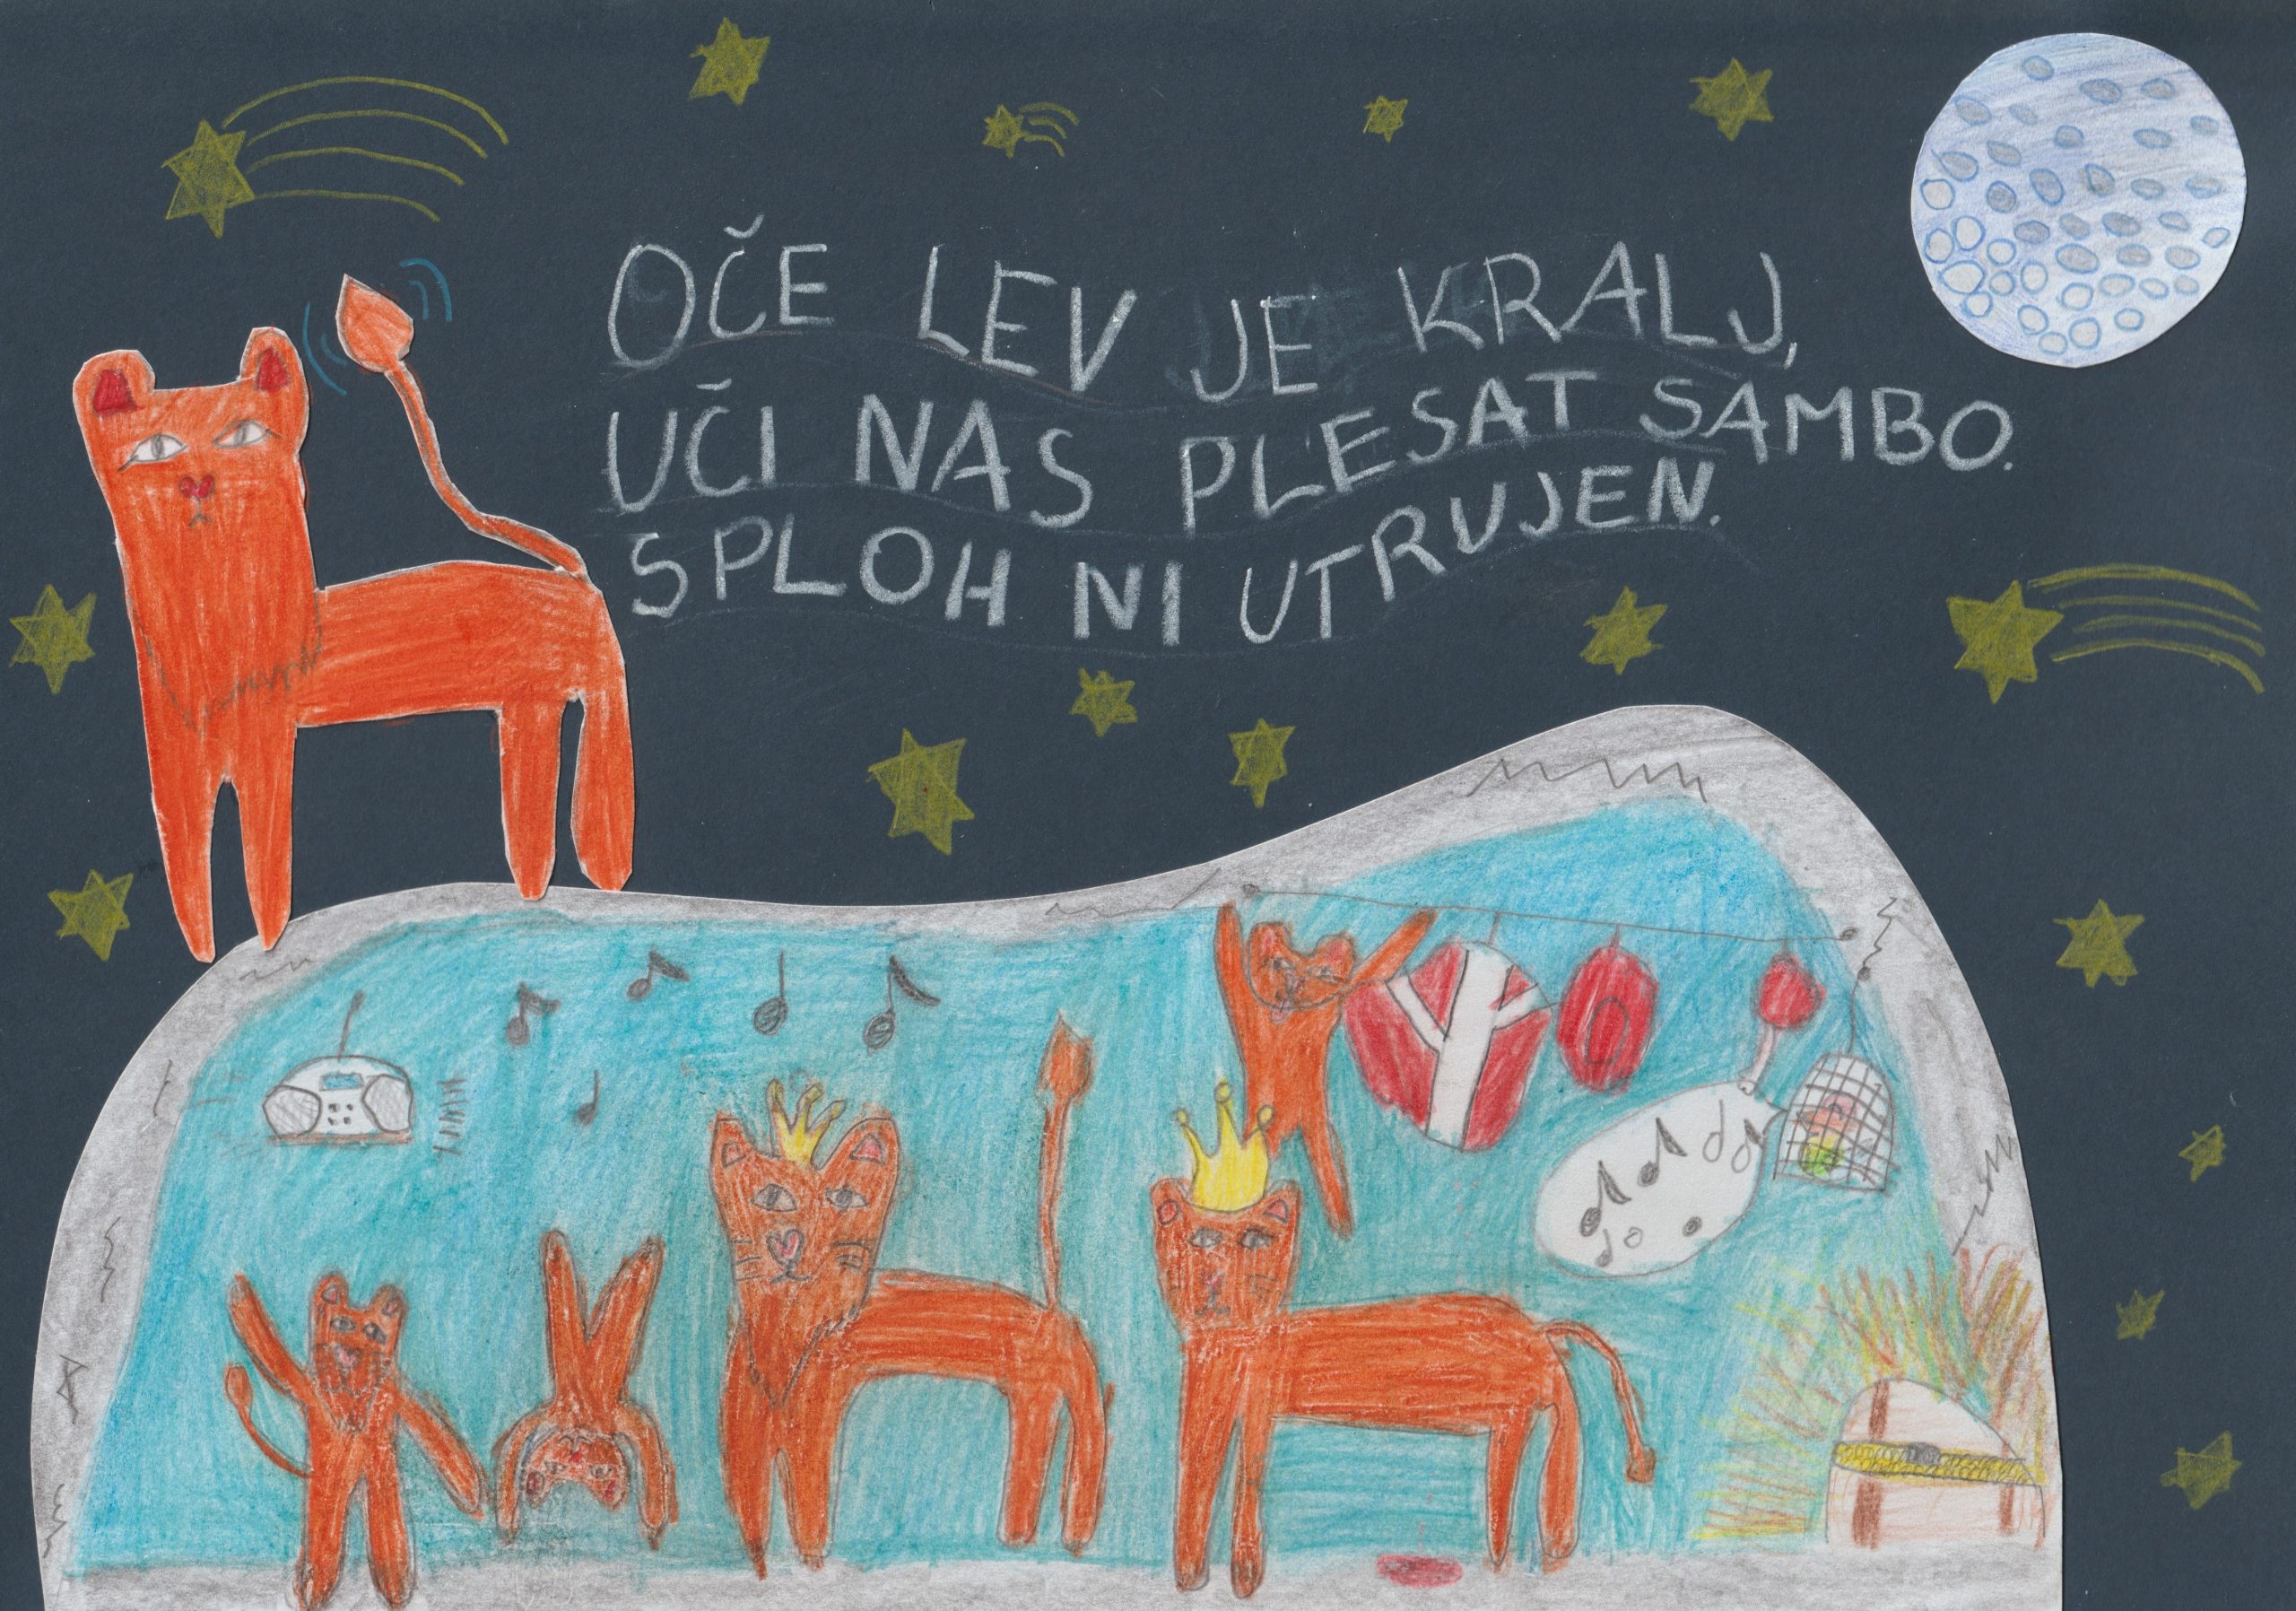 OČE LEV JE KRALJ,
UČI NAS PLESAT SAMBO.
SPLOH NI UTRUJEN.